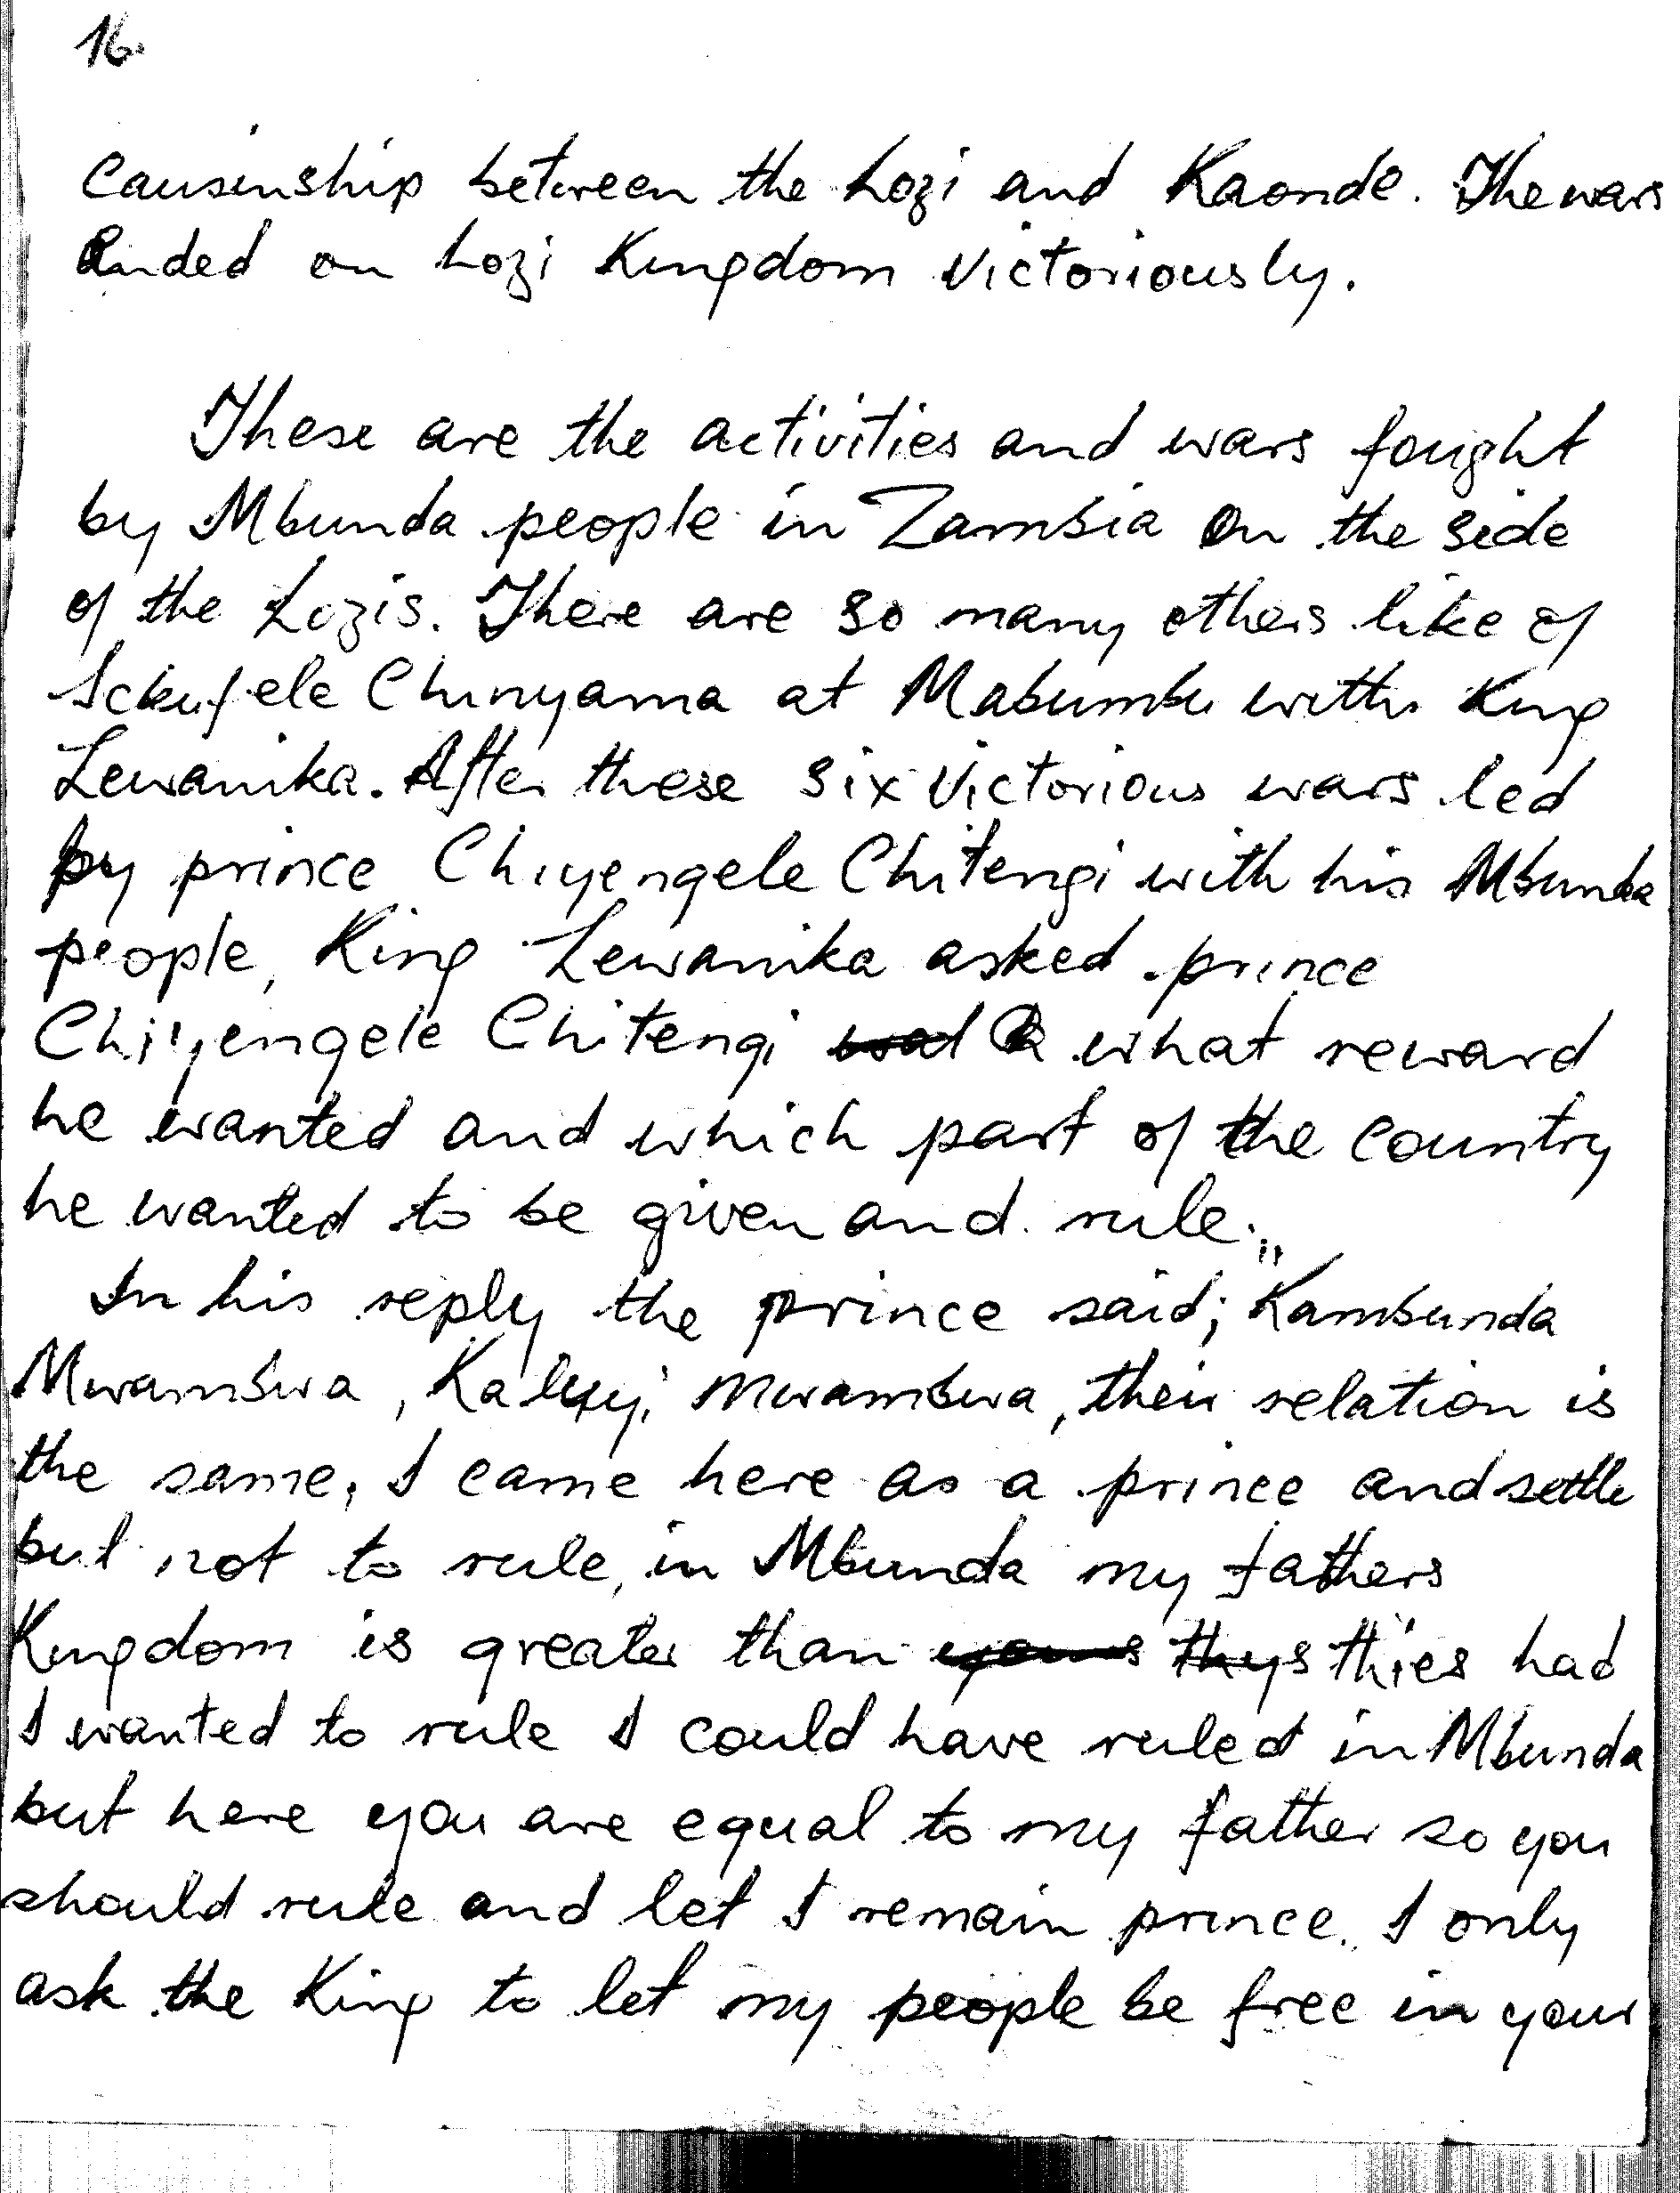 16.
Causinship between the Lozi and Kaonde. The wars
Ended on Lozi Kingdom Victoriously.
These are the activities and wars fought
by Mbunda people in Zambia on the side
of the Lozis. There are so many others like of
Sekufele Chinyama at Mabumbu with King
Lewanika. After these six Victorious wars led
by prince Chiyengele Chitengi with his Mbunda
people, King Lewanika asked prince
Chiyengele Chitengi what reward
he wanted and which part of the country
he wanted to be given and rule.
In his reply the prince said; "Kambunda
Mwambwa, Mwambwa, their relation is
the same, I came here as a prince and settle
but not to rule, in Mbunda my fathers
Kingdom is greater than yours thys thies had
I wanted to rule I could have ruled in Mbunda
but here you are equal to my father so you
should rule and let I remain prince. I only
ask the King to let my people be free in your